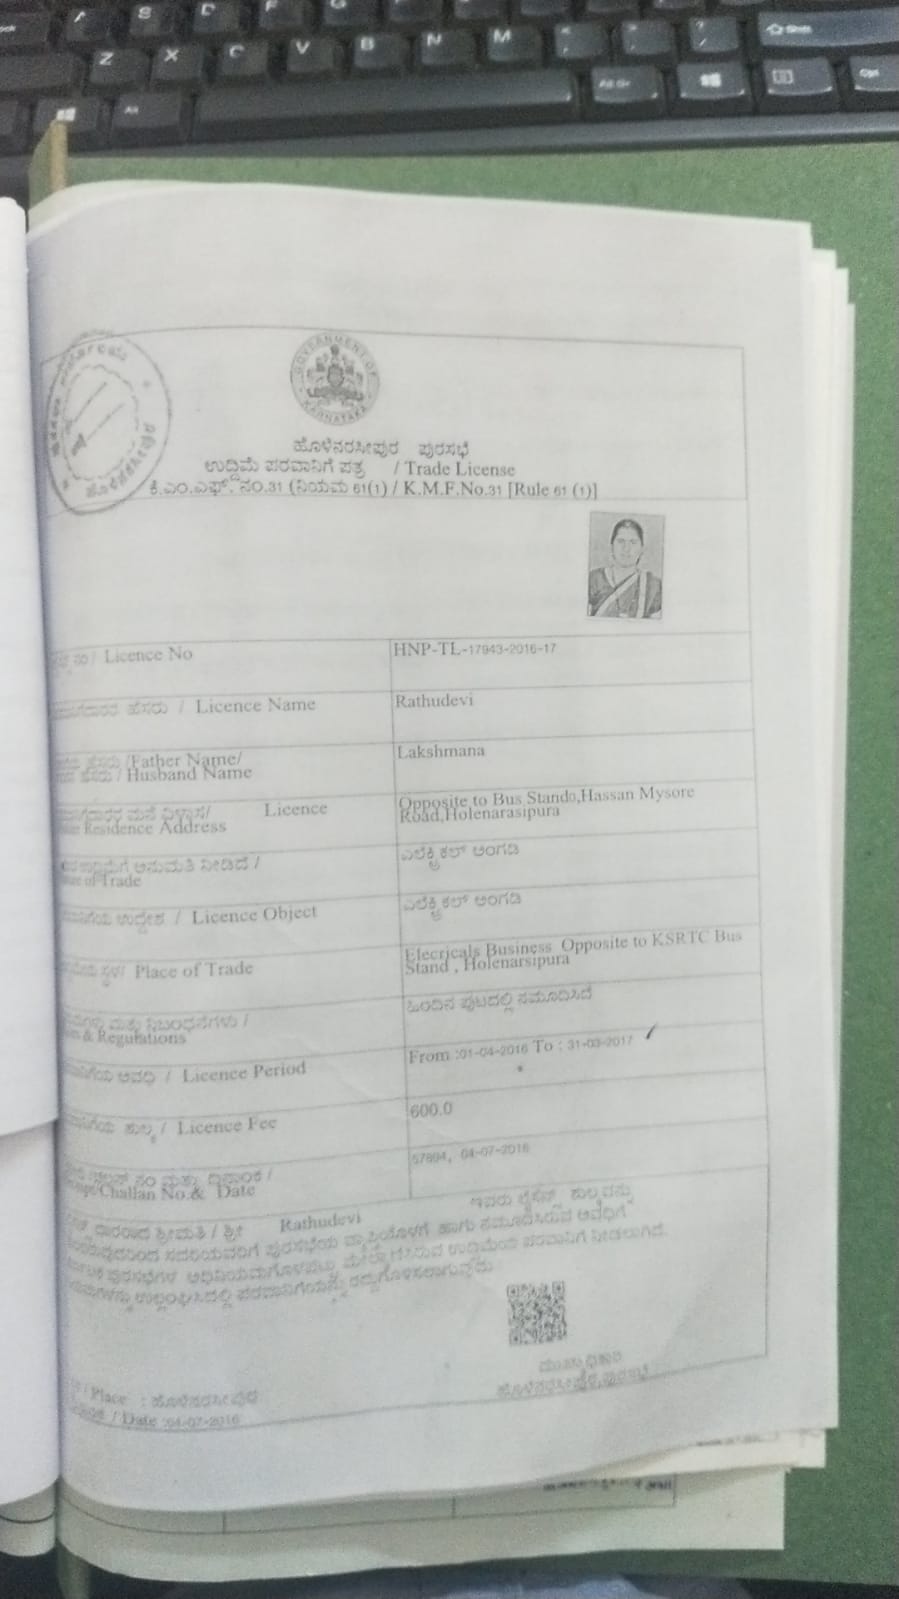 GOVERNMENT OF
KARNATAKA
ಹೊಳೆನರಸೀಪುರ ಪುರಸಭೆ
ಉದ್ದಿಮೆ ಪರವಾನಿಗೆ ಪತ್ರ / Trade License
ಕೆ.ಎಂ.ಎಫ್. ನಂ.31 (ನಿಯಮ 61(1) / K.M.F.No.31 [Rule 61 (1)]
/ Licence No HNP-TL-17943-2016-17
ಹೆಸರು / Licence Name Rathudevi
ಹೆಸರು /Father Name/ Lakshmana
ಹೆಸರು / Husband Name
ಮನೆ ವಿಳಾಸ/ Licence Opposite to Bus Stand0,Hassan Mysore
Residence Address Road,Holenarasipura
ಅನುಮತಿ ನೀಡಿದೆ / ಎಲೆಕ್ಟ್ರಿಕಲ್ ಅಂಗಡಿ
of Trade
ಉದ್ದೇಶ / Licence Object ಎಲೆಕ್ಟ್ರಿಕಲ್ ಅಂಗಡಿ
ಸ್ಥಳ/ Place of Trade Elecricals Business Opposite to KSRTC Bus
Stand , Holenarsipura
ಮತ್ತು ನಿಬಂಧನೆಗಳು / ಹಿಂದಿನ ಪುಟದಲ್ಲಿ ನಮೂದಿಸಿದೆ
& Regulations
ಅವಧಿ / Licence Period From :01-04-2016 To : 31-03-2017
ಶುಲ್ಕ / Licence Fee 600.0
ನಂ ಮತ್ತು ದಿನಾಂಕ / 57894, 04-07-2016
/Challan No.& Date
ಶ್ರೀಮತಿ / ಶ್ರೀ Rathudevi ಇವರು ಲೈಸೆನ್ಸ್ ಶುಲ್ಕವನ್ನು
ಪುರಸಭೆಯ ವ್ಯಾಪ್ತಿಯೊಳಗೆ ಹಾಗು ನಮೂದಿಸಿರುವ ಅವಧಿಗೆ
ಪುರಸಭೆಗಳ ಉದ್ದಿಮೆಯ ಪರವಾನಿಗೆ ನೀಡಲಾಗಿದೆ.
ಉಲ್ಲಂಘಿಸಿದಲ್ಲಿ ಪರವಾನಿಗೆಯನ್ನು ರದ್ದುಗೊಳಿಸಲಾಗುವುದು
ಮುಖ್ಯಾಧಿಕಾರಿ
ಹೊಳೆನರಸೀಪುರ ಪುರಸಭೆ
/ Place : ಹೊಳೆನರಸೀಪುರ
/ Date :04-07-2016